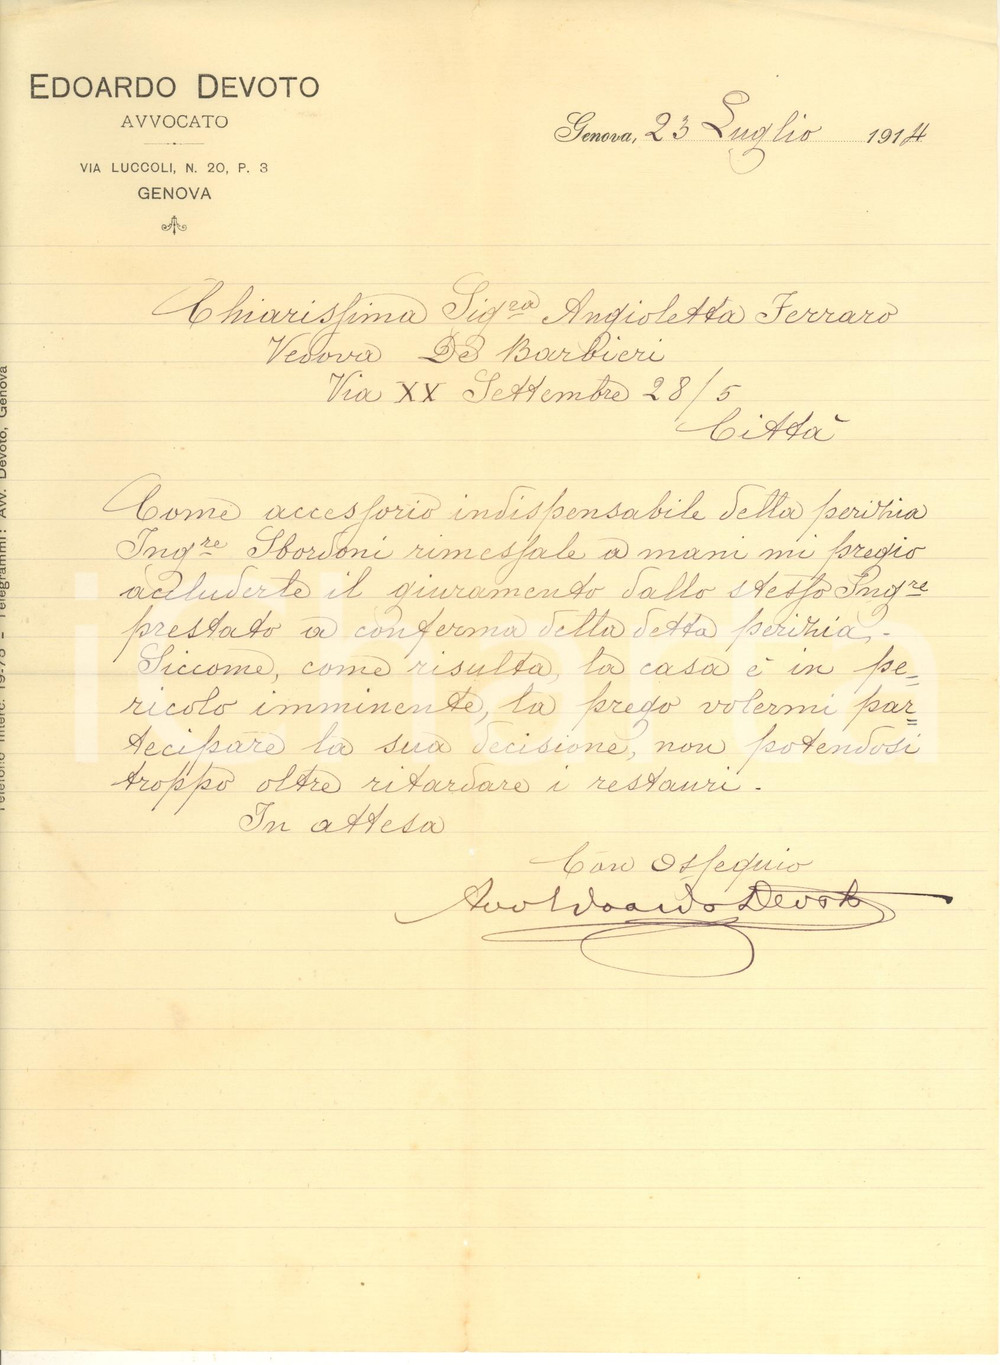 EDOARDO DEVOTO
AVVOCATO
VIA LUCCOLI, N. 20, P. 3
GENOVA
Genova, 23 Luglio 1914
Chiarissima Sigra Angioletta Ferraro
Vedova De Barbieri
Via XX Settembre 28/5
Città
Come accessorio indispensabile della perizia
Ingre Sbordoni rimessale a mani mi pregio
accluderle il giuramento dallo stesso Ingre
prestato a conferma della detta perizia.-
Siccome, come risulta, la casa è in pe=
ricolo imminente, la prego volermi par=
tecipare la sua decisione, non potendosi
troppo oltre ritardare i restauri.
In attesa
Con ossequio
Avv Edoardo Devoto
Telefono Interc. 19-78 - Telegrammi: Avv. Devoto, Genova